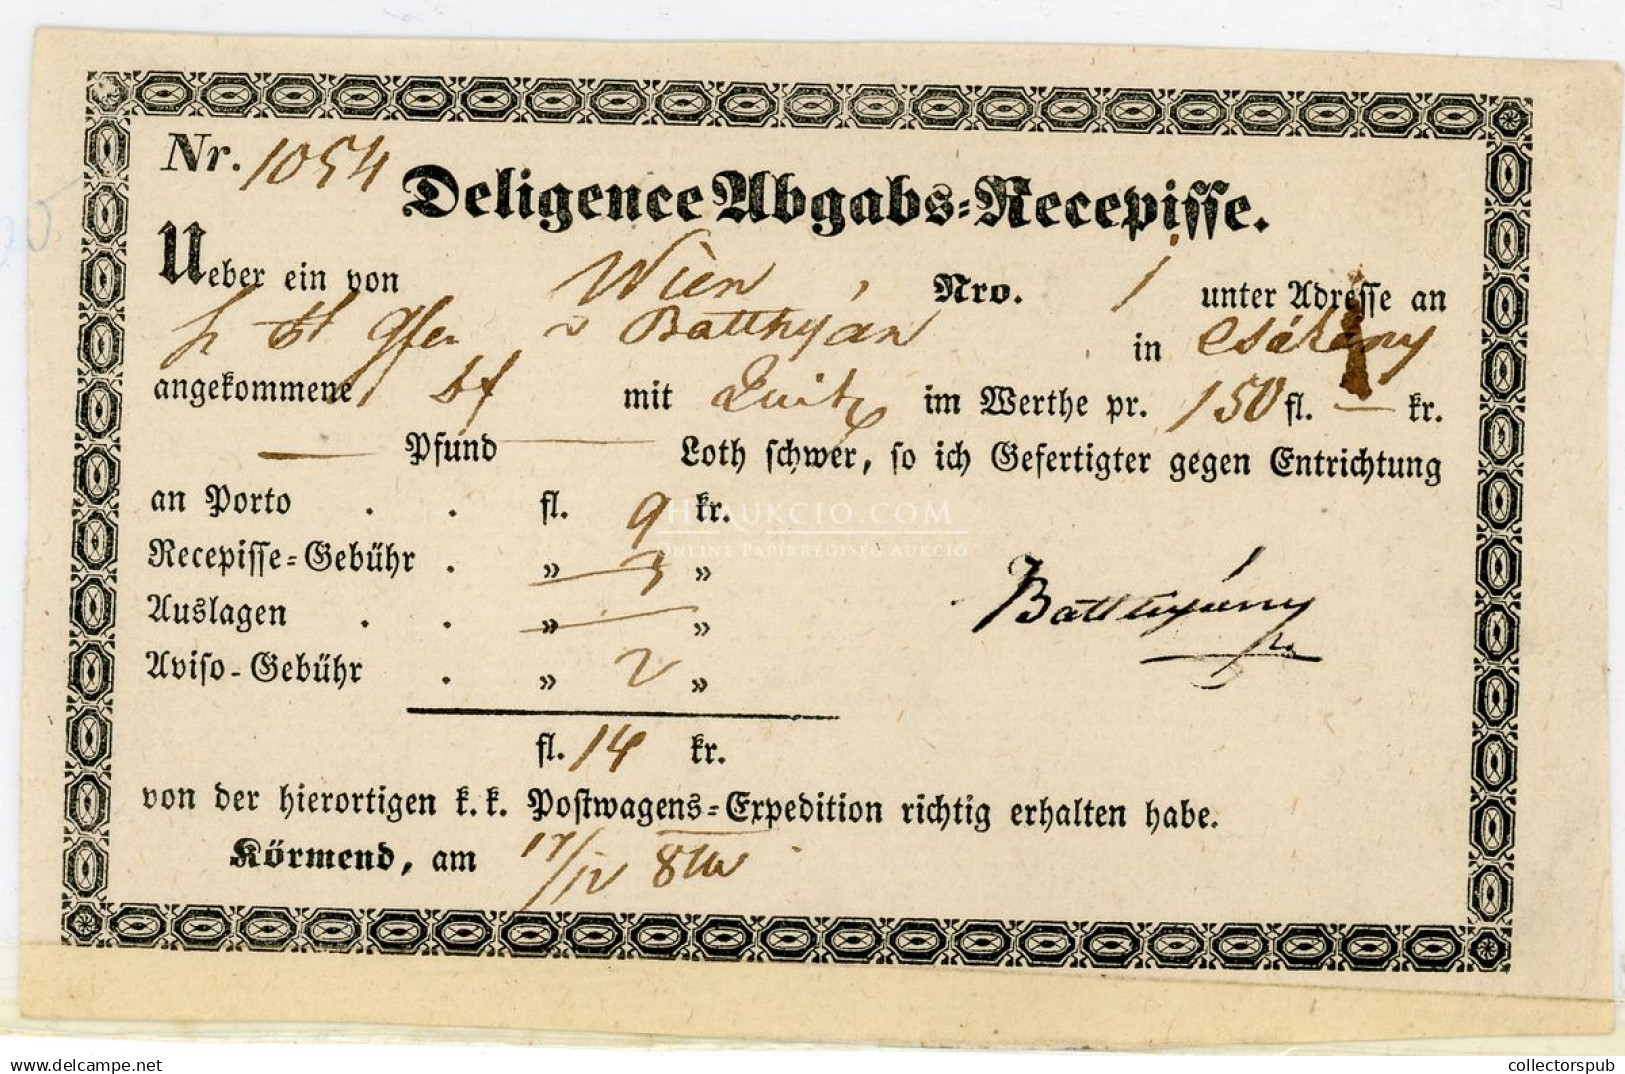 Nr. 1054
Deligence Abgabs-Recepisse.
Ueber ein von Wien, Nro. 1 unter Adresse an
Gfen v Batthyán in Csákány
angekommene mit im Werthe pr. 150 fl. — kr.
— Pfund — Loth schwer, so ich Gefertigter gegen Entrichtung
an Porto . . fl. 9 kr.
Recepisse-Gebühr . » 3 »
Auslagen . . » — »
Aviso-Gebühr . » 2 »
fl. 14 kr.
Batthyány
von der hierortigen k. k. Postwagens-Expedition richtig erhalten habe.
Körmend, am 17/12
AUKCIO.COM
ONLINE PAPÍRRÉGISÉG AUKCIÓ
www.delcampe.net
collectorspub